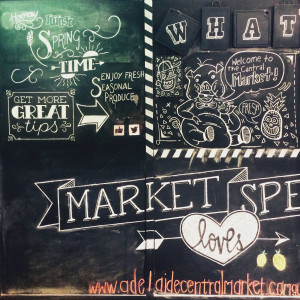 Hooray
it's
SPRING
TIME
ENJOY FRESH
SEASONAL
PRODUCE
GET MORE
GREAT
tips
WHAT
Welcome to
The Central
Market!
FRESH
MARKET SPE
loves
www.adelaidecentralmarket.com.a